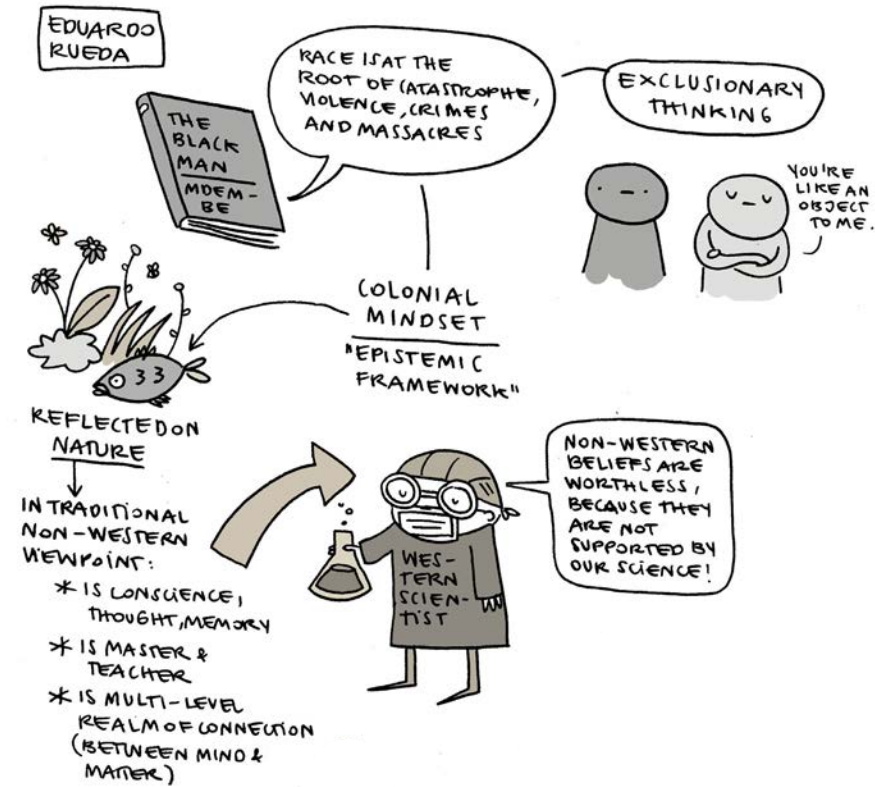 EDUARDO
RUEDA
THE
BLACK
MAN
MDEM-
BE
RACE IS AT THE
ROOT OF CATASTROPHE,
VIOLENCE, CRIMES
AND MASSACRES
EXCLUSIONARY
THINKING
YOU'RE
LIKE AN
OBJECT
TO ME.
COLONIAL
MINDSET
"EPISTEMIC
FRAMEWORK"
REFLECTED ON
NATURE
IN TRADITIONAL
NON-WESTERN
VIEWPOINT:
* IS CONSCIENCE,
THOUGHT, MEMORY
* IS MASTER &
TEACHER
* IS MULTI-LEVEL
REALM OF CONNECTION
(BETWEEN MIND &
MATTER)
WES-
TERN
SCIEN-
TIST
NON-WESTERN
BELIEFS ARE
WORTHLESS,
BECAUSE THEY
ARE NOT
SUPPORTED BY
OUR SCIENCE!